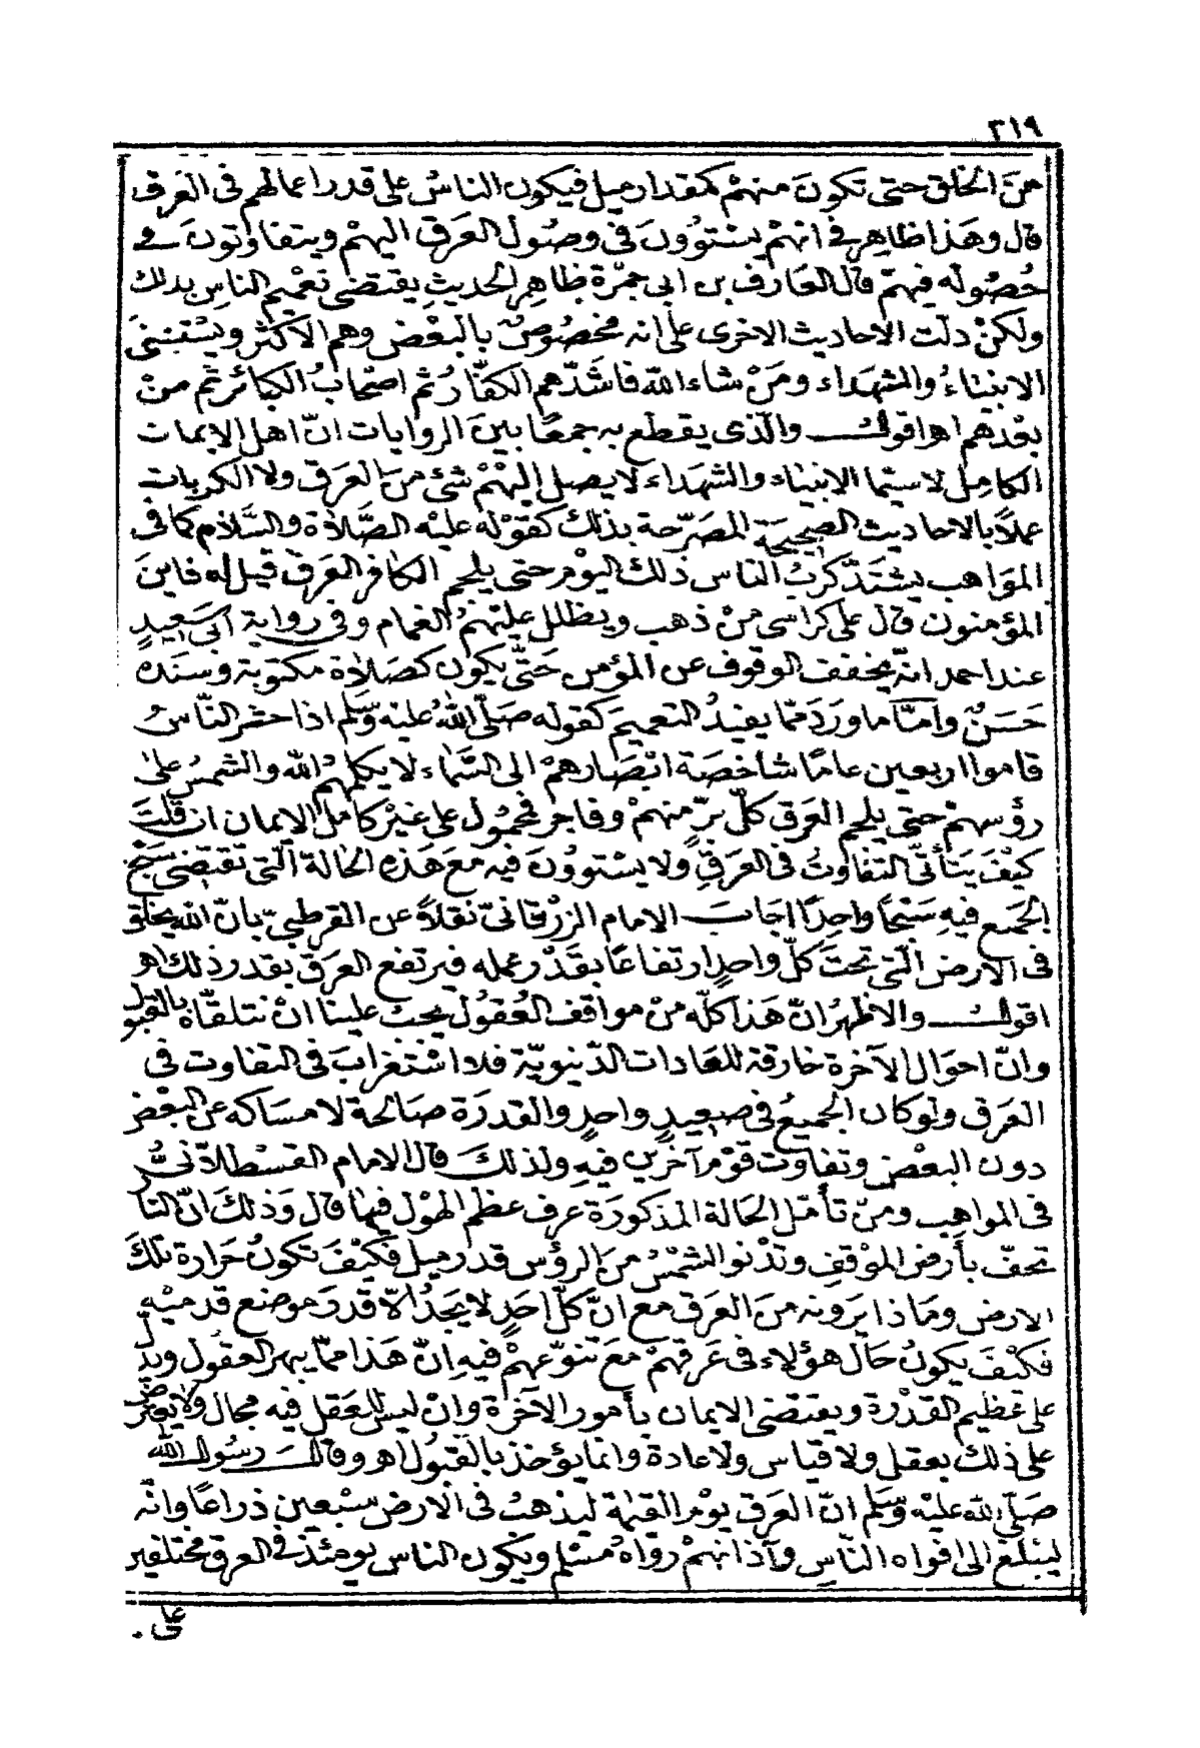 ٣١٩
منَ الخلق حتى تكونَ منهمْ كمقدار ميل فيكون الناسُ على قدر اعمالهم فى العَرق
قال وهَذا ظاهر فى انهمْ يسْتوُونَ فى وصُول العَرق اليهمْ ويتفاوتونَ فى
حُصُوله فيهمْ قال العَارف بن ابى جمّرة ظاهِر الحديثِ يقتضى تعْميم الناسِ بذلك
ولكنْ دلّت الاحاديث الاخرى على انه مخصُوصٌ بالبَعْض وهم الاكثر ويسْتثنىَ
الانبياءُ والشهَداء ومَنْ شاء الله فاشَدّهم الكفّارُ ثمْ اصْحابُ الكبائر ثم منْ
بعْدهم اهـ اقول والّذى يقطع به جمعًا بينَ الروايات انّ اهل الايمان
الكامِل لاسيّما الانبياء والشهَداء لا يصل اليْهمْ شئ منَ العرق ولا الكربات
عملاً بالاحاديث الصحيحة المصَرّحة بذلك كقوْله عليْه الصَّلاة والسَّلام كما فى
الموَاهب يشتَدّ كربُ الناس ذلك اليوْم حتى يلجم الكافر العَرق قيل له فاينَ
المؤمنون قال على كراسى منْ ذهب ويظلل عليْهمُ الغمام وفى رواية ابى سَعيدٍ
عند احمد انّه يخفف الوقوف عن المؤمن حَتّى يكون كصَلاة مكتوبة وسنَده
حَسَنٌ وأمَّا ما ورَدَ ممّا يفيدُ التعميمَ كقوله صَلّى اللهُ عليْه وَسّلم اذا حشر النّاسُ
قاموا اربعين عامًا شاخصَة ابْصَارهمْ الى السَّماء لا يكلمهُم الله والشمسُ علىٰ
رؤسهمْ حتى يلجم العَرق كلّ برٍّ منهمْ وفاجر فمحْمُول على غيْر كامل الايمان ان قلتَ
كيْفَ يَتَأتّى التفاوتُ فى العَرقِ ولا يسْتوُونَ فيه معَ هَذه الحَالة الّتى تقتضى سَبْحَ
الجمَيع فيهِ سَبْحًا واحِدًا اجَابَ الامام الزرْقانىّ نقلاً عن القرطبىّ بانّ الله يخلق
فى الارض الّتى تحتَ كلّ واحدٍ ارتفاعًا بقَدْر عمله فيرتفع العرَق بقدر ذلك اهـ
اقول والاظهرُ انّ هَذا كلّه منْ مواقف العُقول يجبُ علينا انْ نتلقّاه بالقبول
وانّ احوَال الآخرة خارقة للعَادات الدّنيويّة فلا اسْتغرابَ فى التفاوت فى
العَرق ولو كان الجميعُ فى صعيدٍ واحدٍ والقدرَة صَالحة لامسَاكه عن البعْض
دون البعْض وتفاوت قوْم آخرين فيهِ ولذلكَ قال الامام القسْطلاّنىُّ
فى المواهب ومنْ تأمّل الحَالة المذكورَة عرف عظم الهوْل فيها قال وَذلكَ انّ النّار
تحفّ بأرض الموْقفِ وتدْنو الشمْسُ منَ الرؤس قدر ميل فكيْفَ تكونُ حَرارة تلكَ
الارض ومَاذا يَرونه منَ العَرق مع انّ كلّ احَدٍ لا يَجدُ الاّ قدرَ موضع قدميْه
فكيْفَ يكونُ حَال هؤلاء فى عَرقهمْ معَ تنوّعهمْ فيهِ انّ هَذا ممّا يبهر العقول ويدل
على عَظيم القدْرة ويقتضى الايمان بأمور الآخرَة وانْ ليسَ للعَقل فيه مجال ولا يعترض
على ذلك بعقل ولا قياس ولا عادة وانما يؤخذ بالقبُول اهـ وقال رسُول الله
صَلّى الله عليْه وَسَلم انّ العَرق يوْم القيٰمة ليذهبُ فى الارض سبْعين ذراعًا وانّه
ليبْلغ الى افواه النّاسِ وآذانهمْ رواهُ مسْلم ويكون الناس يومئذ فى العرق مختلفين
على .